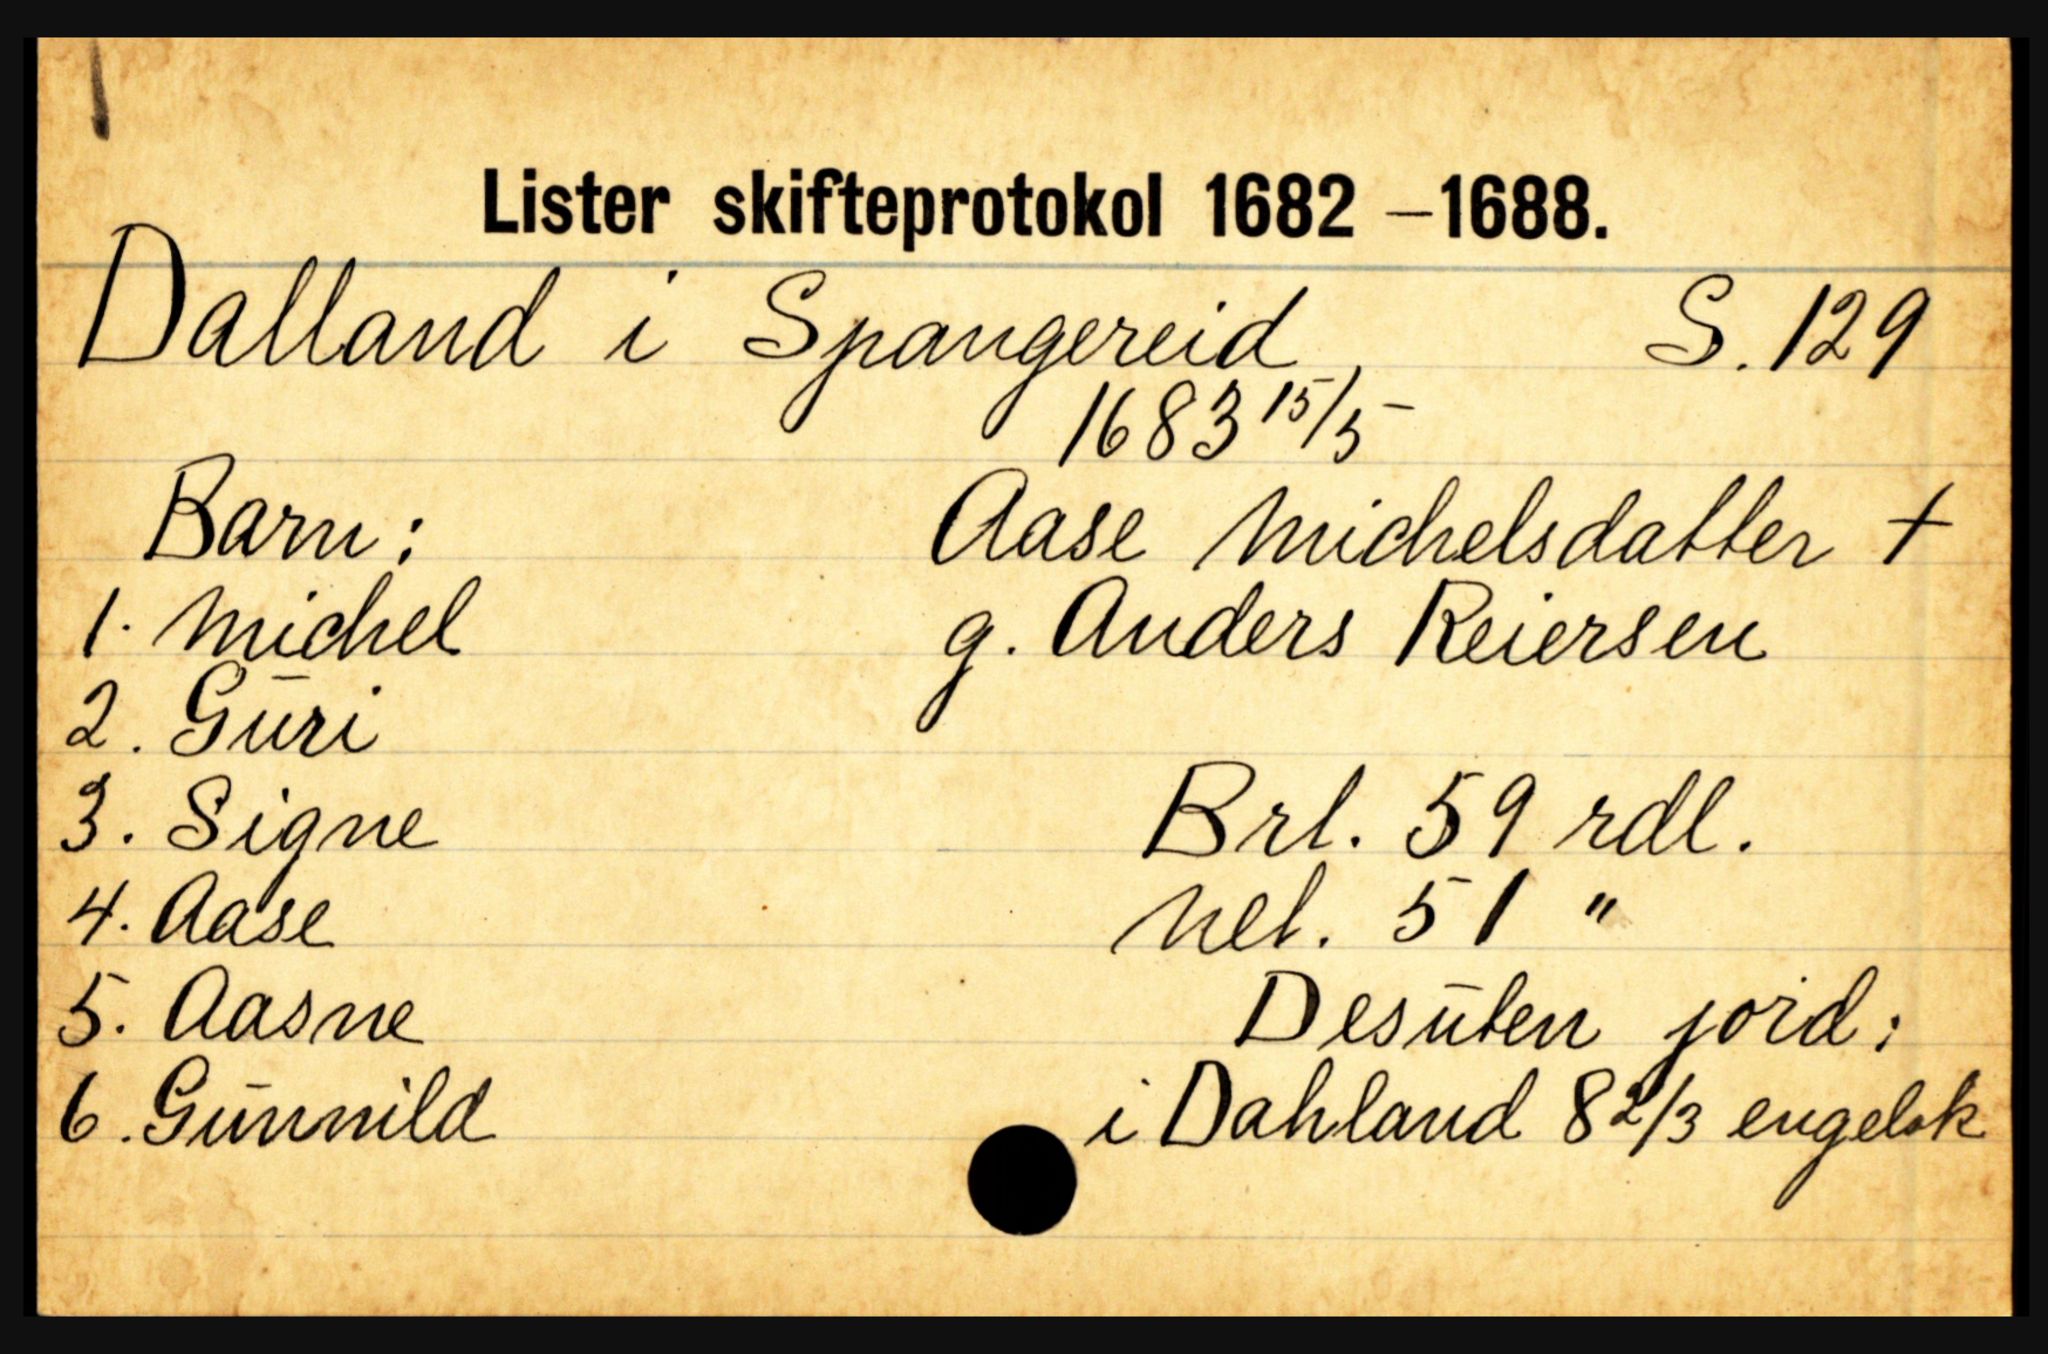 Lister skifteprotokol 1682 – 1688.
Dalland i Spangereid S. 129
1683 15/5
Barn: Aase Michelsdatter +
1. Michel g. Anders Reiersen
2. Guri
3. Signe Brt. 59 rdl.
4. Aase Net. 51 "
5. Aasne Desuten jord:
6. Gunnild i Dahland 8 2/3 engelsk